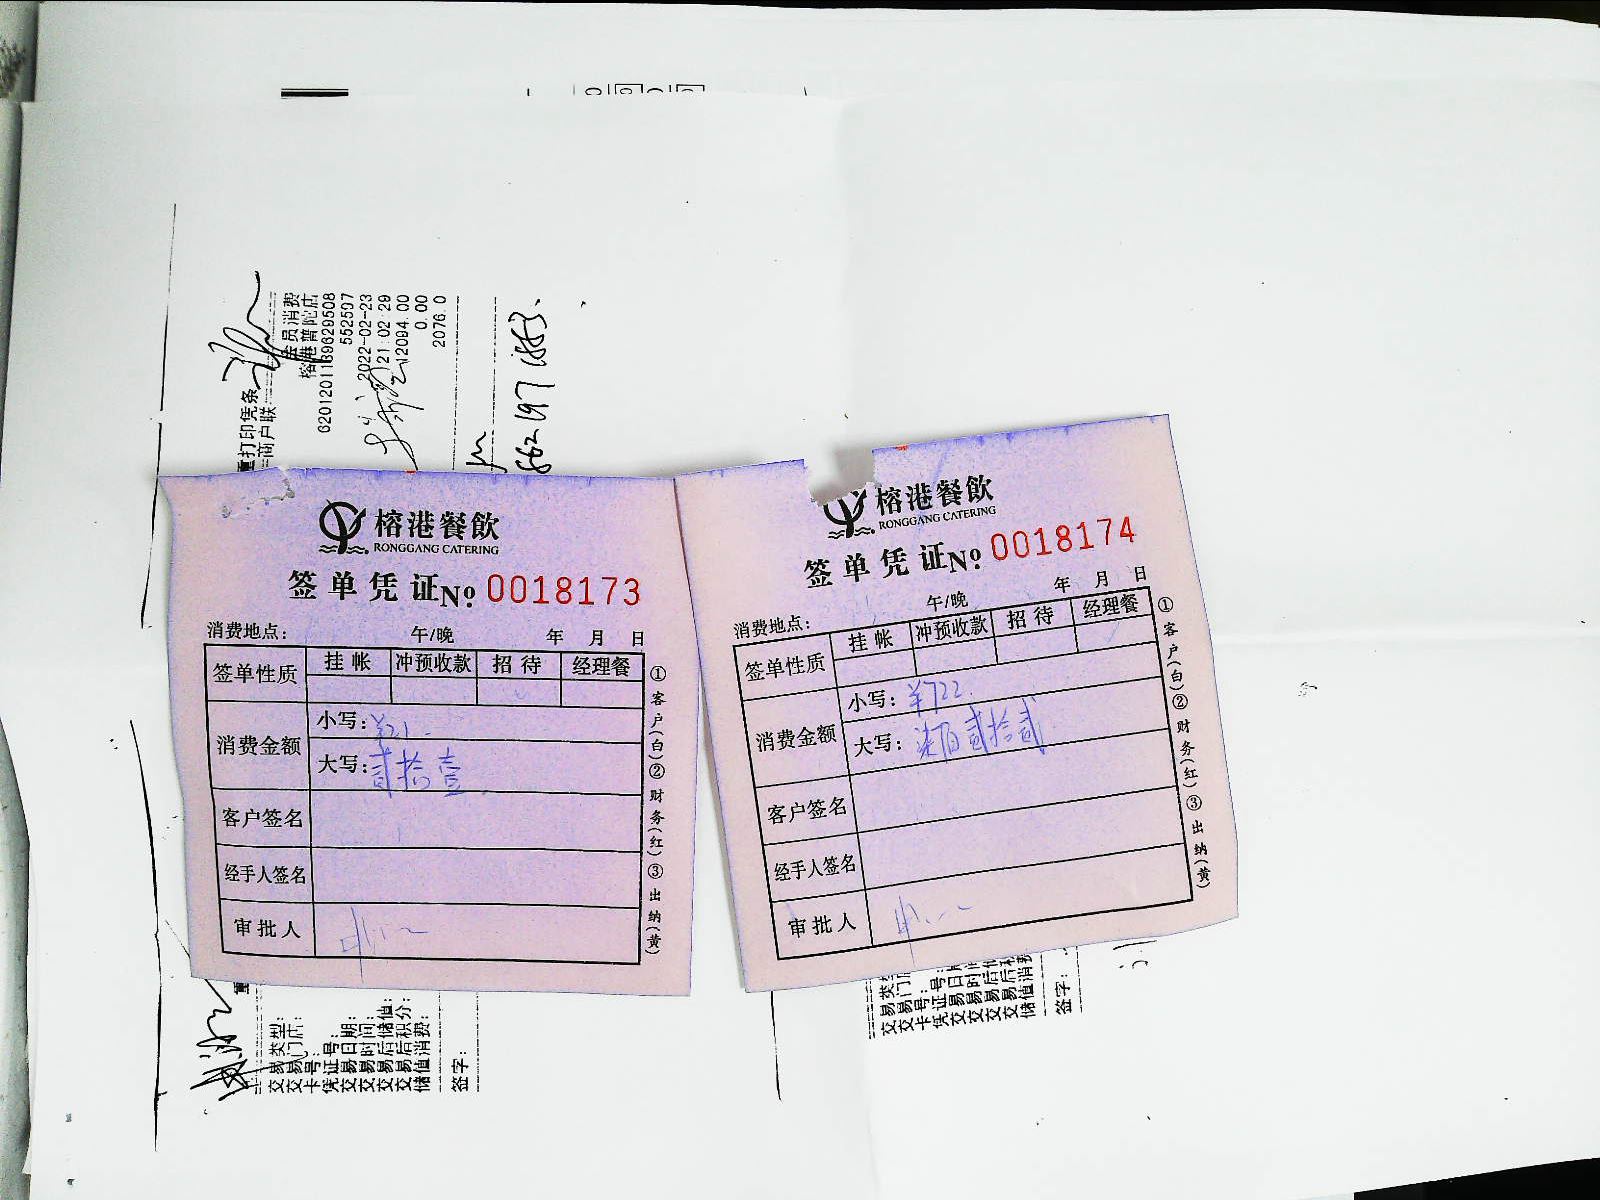 重打印凭条
商户联
会员消费
榕港普陀店
6201201189629508
552507
2022-02-23
21:02:29
12094.00
0.00
2076.0
榕港餐飲
RONGGANG CATERING
签单凭证№ 0018173
消费地点： 午/晚 年 月 日
签单性质 挂帐 冲预收款 招待 经理餐
消费金额 小写：¥21.
大写：贰拾壹
客户签名
经手人签名
审批人
①客户(白)②财务(红)③出纳(黄)
榕港餐飲
RONGGANG CATERING
签单凭证№ 0018174
消费地点： 午/晚 年 月 日
签单性质 挂帐 冲预收款 招待 经理餐
消费金额 小写：¥722.
大写：柒佰贰拾贰
客户签名
经手人签名
审批人
①客户(白)②财务(红)③出纳(黄)
交易类型：
交易门店：
卡号：
凭证号：
交易日期：
交易时间：
交易后储值：
交易后积分：
储值消费：
签字：
交易类
交易门
卡号：
凭证号：
交易日
交易时间
交易后
交易后
储值消费
签字：